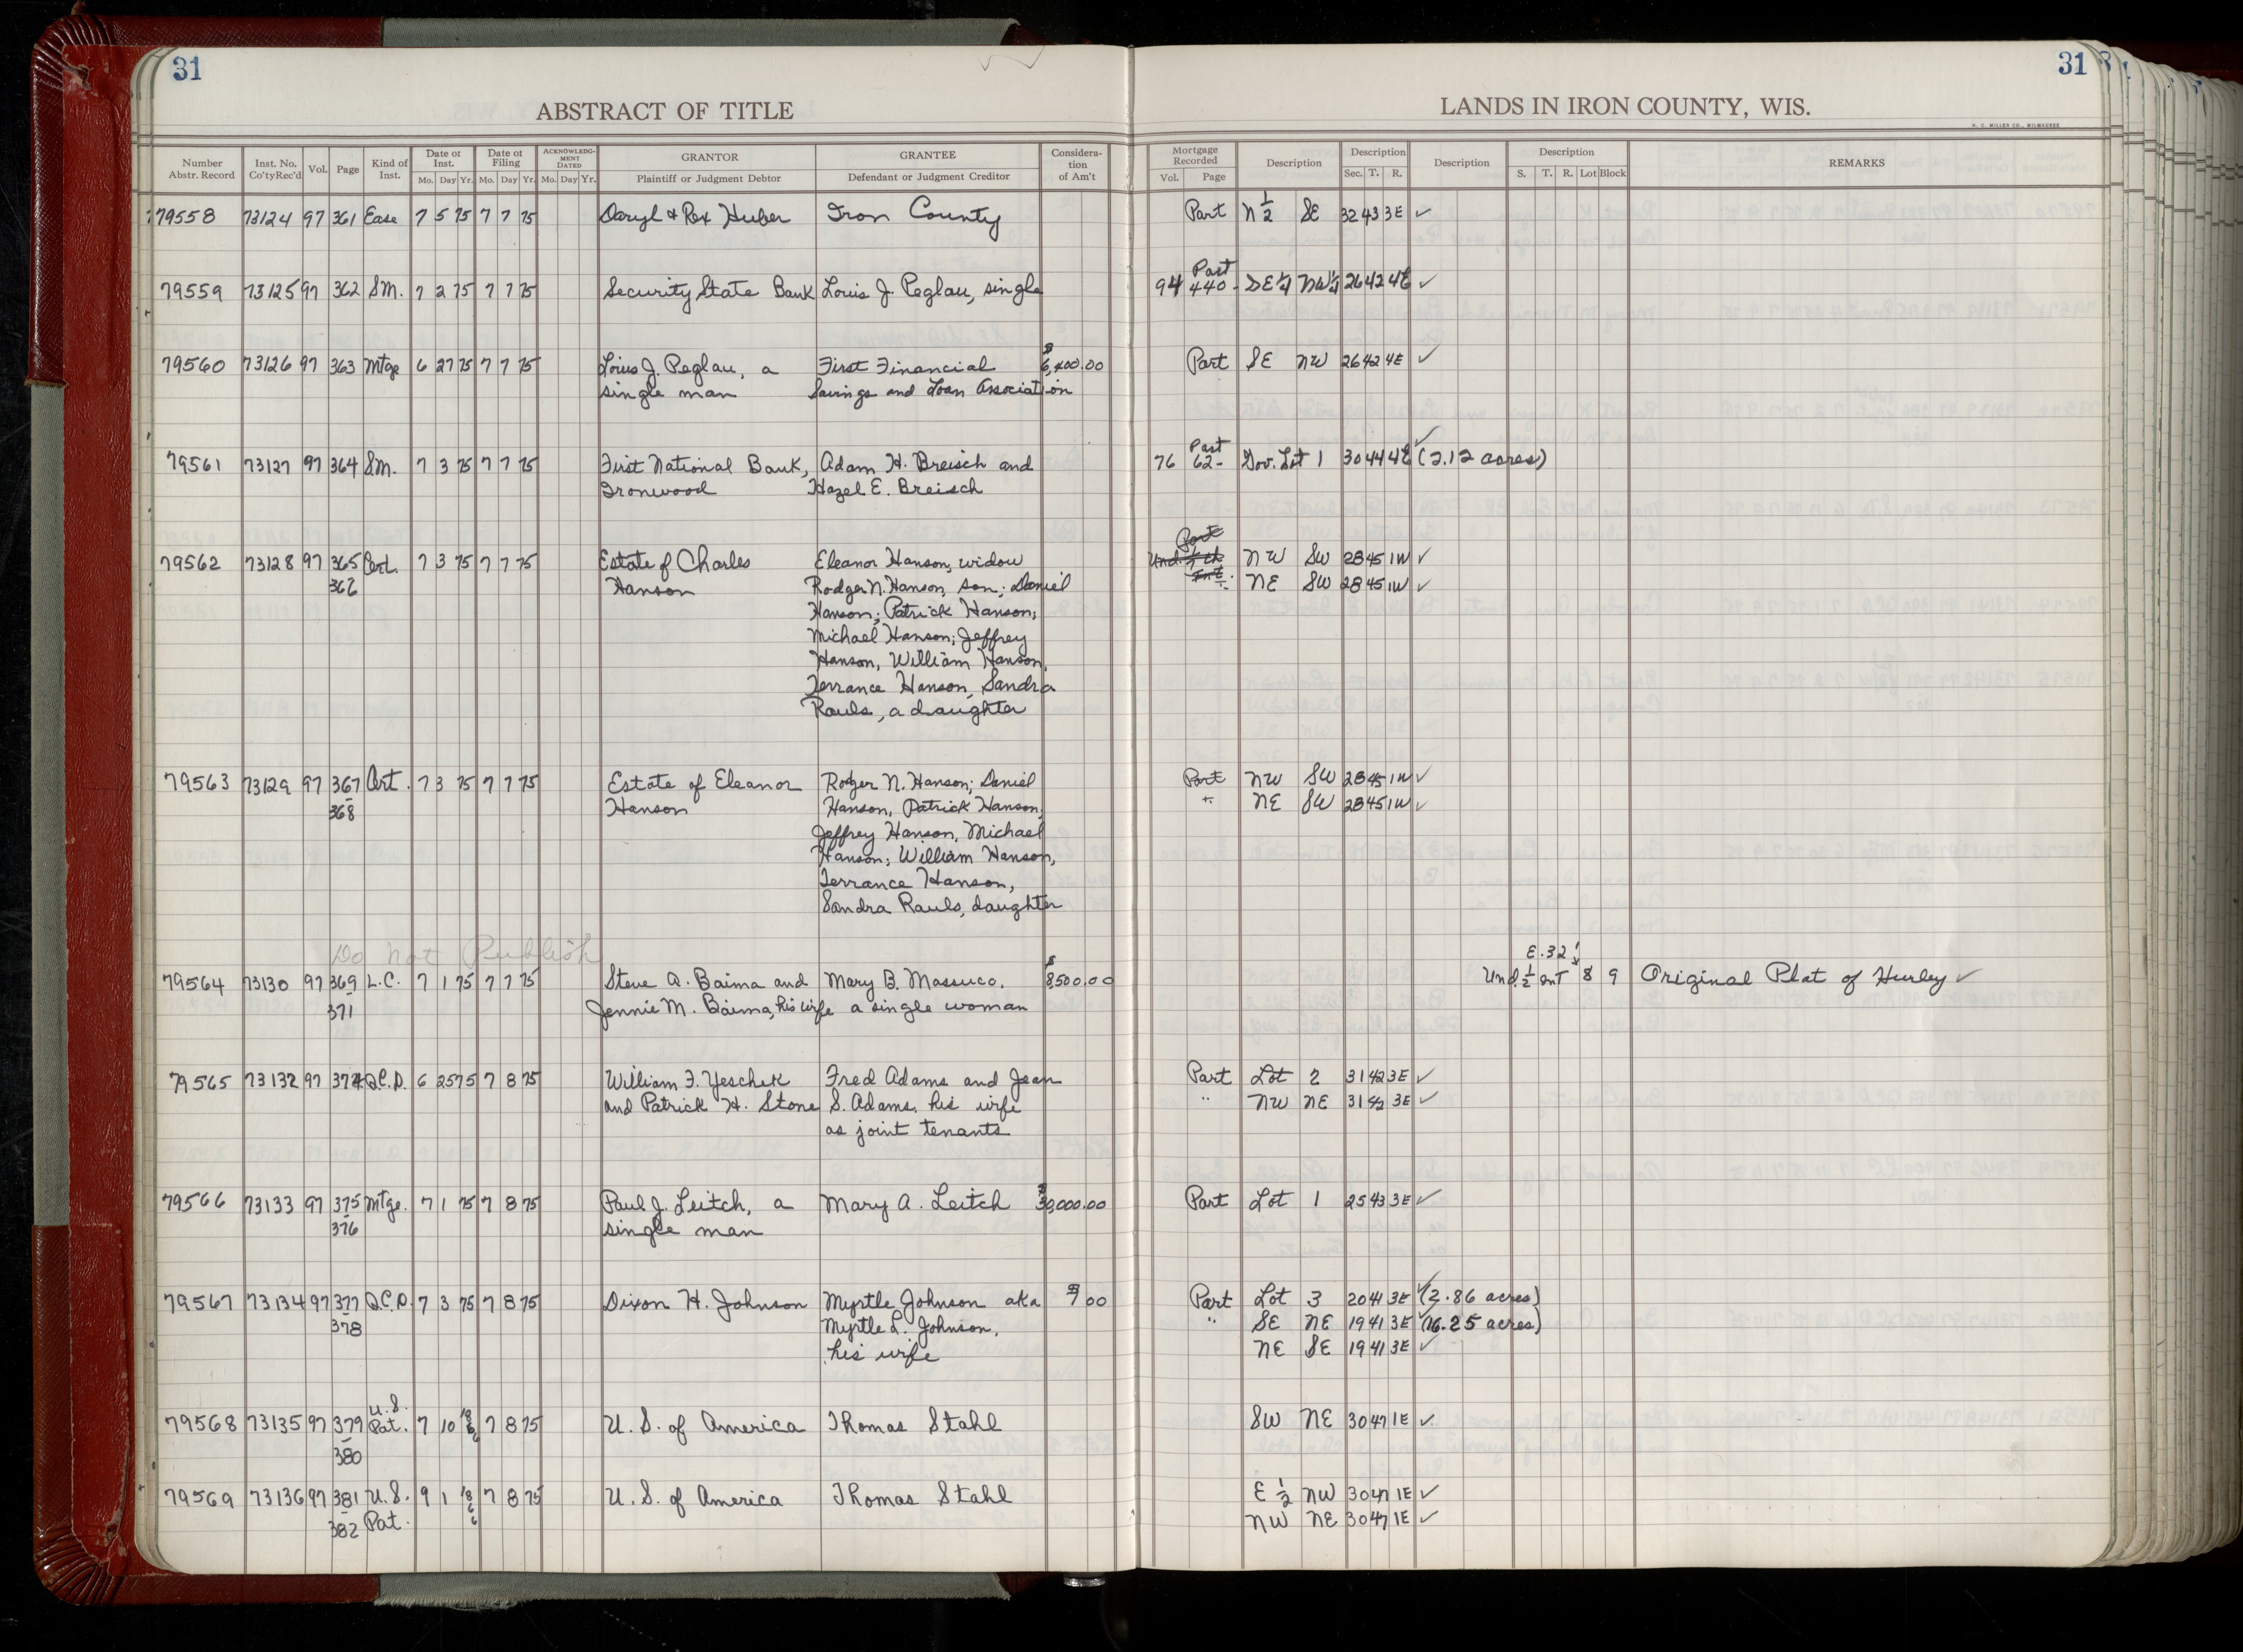 31
31
ABSTRACT OF TITLE
LANDS IN IRON COUNTY, WIS.
H. C. MILLER CO., MILWAUKEE
Number Abstr. Record Inst. No. Co'ty Rec'd Vol. Page Kind of Inst. Date of Inst. Mo. Day Yr. Date of Filing Mo. Day Yr. ACKNOWLEDGMENT DATED Mo. Day Yr. GRANTOR Plaintiff or Judgment Debtor GRANTEE Defendant or Judgment Creditor Consideration of Am't Mortgage Recorded Vol. Page Description Description Sec. T. R. Description Description S. T. R. Lot Block REMARKS
79558 73124 97 361 Ease 7 5 75 7 7 75 Daryl & Rex Huber Iron County Part N ½ SE 32 43 3E ✓
Part
79559 73125 97 362 SM. 7 2 75 7 7 75 Security State Bank Louis J. Peglau, single 94 440 - SE¼ NW¼ 26 42 4E ✓
79560 73126 97 363 Mtge 6 27 75 7 7 75 Louis J. Peglau, a First Financial $6,400.00 Part SE NW 26 42 4E ✓
single man Savings and Loan Association
Part
79561 73127 97 364 SM. 7 3 75 7 7 75 First National Bank, Adam H. Breisch and 76 62- Gov. Lot 1 30 44 4E ✓ (2.12 acres)
Ironwood Hazel E. Breisch
Part
79562 73128 97 365 Cert. 7 3 75 7 7 75 Estate of Charles Eleanor Hanson, widow Und. NW SW 28 45 1W ✓
366 Hanson Rodger N. Hanson, son; Daniel Int. NE SW 28 45 1W ✓
Hanson; Patrick Hanson;
Michael Hanson; Jeffrey
Hanson, William Hanson,
Terrance Hanson, Sandra
Rauls, a daughter
79563 73129 97 367 Cert. 7 3 75 7 7 75 Estate of Eleanor Rodger N. Hanson; Daniel Part NW SW 28 45 1W ✓
368 Hanson Hanson, Patrick Hanson, " NE SW 28 45 1W ✓
Jeffrey Hanson, Michael
Hanson; William Hanson,
Terrance Hanson,
Sandra Rauls, daughter
Do not Publish
E. 32'
79564 73130 97 369 L.C. 7 1 75 7 7 75 Steve A. Baima and Mary B. Massuco, $8,500.00 Und. ½ Int 8 9 Original Plat of Hurley ✓
371 Jennie M. Baima, his wife a single woman
79565 73132 97 374 Q.C.D. 6 25 75 7 8 75 William F. Yeschek Fred Adams and Jean Part Lot 2 31 42 3E ✓
and Patrick H. Stone S. Adams, his wife " NW NE 31 42 3E ✓
as joint tenants
79566 73133 97 375 Mtge. 7 1 75 7 8 75 Paul J. Leitch, a Mary A. Leitch $30,000.00 Part Lot 1 25 43 3E ✓
376 single man
79567 73134 97 377 Q.C.D. 7 3 75 7 8 75 Dixon H. Johnson Myrtle Johnson aka 00 Part Lot 3 20 41 3E ✓ (2.86 acres)
378 Myrtle L. Johnson, " SE NE 19 41 3E ✓ (16.25 acres)
his wife NE SE 19 41 3E ✓
U.S.
79568 73135 97 379 Pat. 7 10 1866 7 8 75 U. S. of America Thomas Stahl SW NE 30 47 1E ✓
380
79569 73136 97 381 U.S. 9 1 1866 7 8 75 U. S. of America Thomas Stahl E ½ NW 30 47 1E ✓
382 Pat. NW NE 30 47 1E ✓